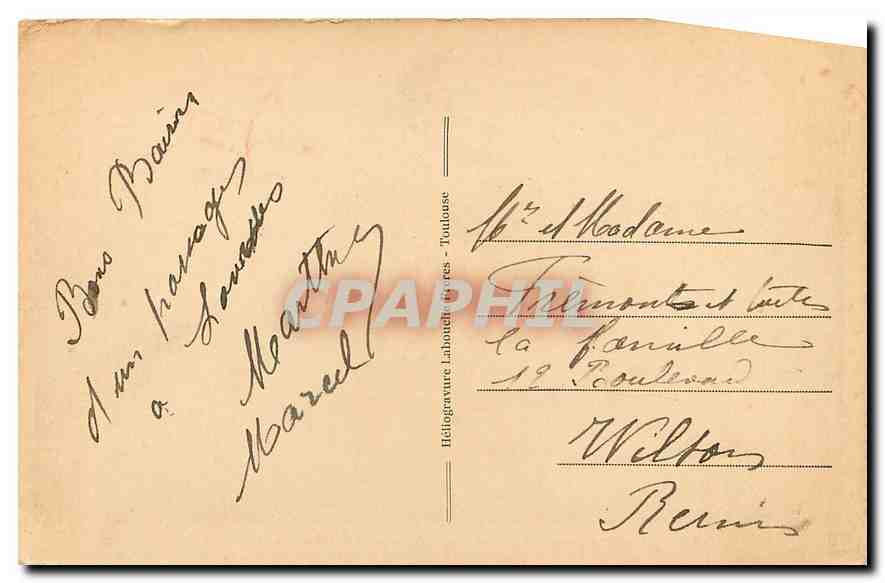 Bons Baisers
d'un passage
a Lourdes
Marthe
Marcel
Héliogravure Labouche Frères - Toulouse
Mr et Madame
Frèmont et toute
la famille
12 Boulevard
Wilson
Reims
CPAPHIL